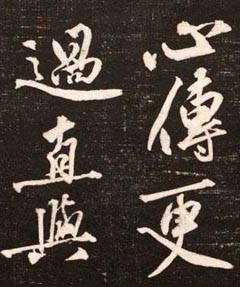 心傳更
過直與